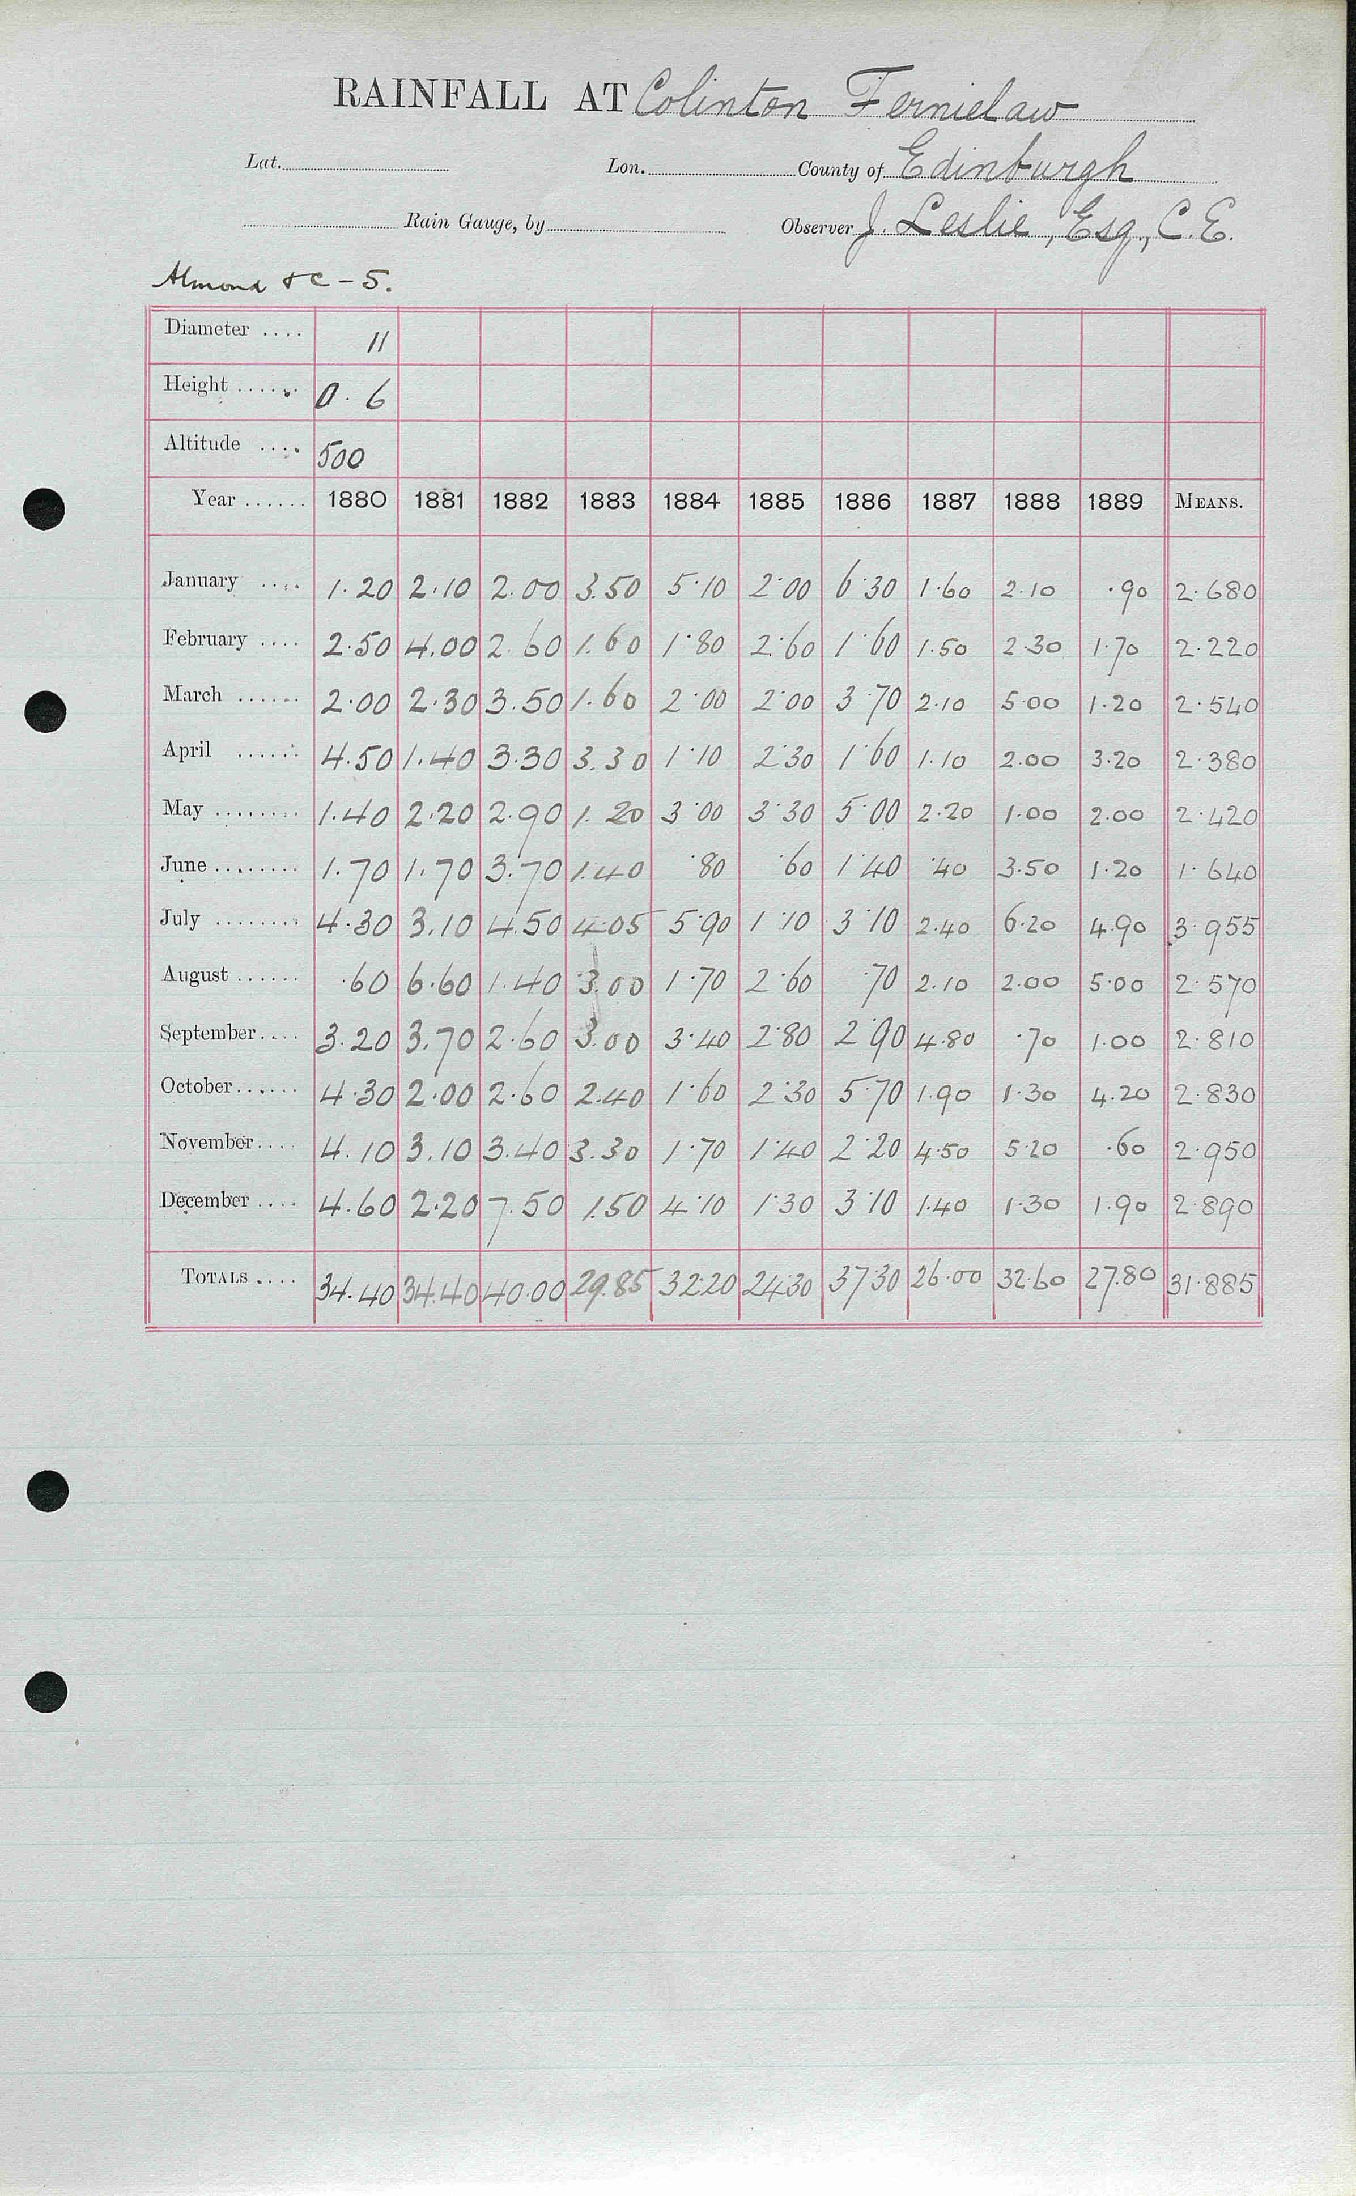 RAINFALL AT Colinton Fernielaw
Lat. Lon. County of Edinburgh
Rain Gauge, by Observer J. Leslie, Esq., C.E.
Almond & C - 5.
Diameter .... 11
Height ...... 0. 6
Altitude .... 500
Year ...... 1880 1881 1882 1883 1884 1885 1886 1887 1888 1889 MEANS.
January .... 1.20 2.10 2.00 3.50 5.10 2.00 6.30 1.60 2.10 .90 2.680
February .... 2.50 4.00 2.60 1.60 1.80 2.60 1.60 1.50 2.30 1.70 2.220
March ...... 2.00 2.30 3.50 1.60 2.00 2.00 3.70 2.10 5.00 1.20 2.540
April ...... 4.50 1.40 3.30 3.30 1.10 2.30 1.60 1.10 2.00 3.20 2.380
May ........ 1.40 2.20 2.90 1.20 3.00 3.30 5.00 2.20 1.00 2.00 2.420
June ........ 1.70 1.70 3.70 1.40 .80 .60 1.40 .40 3.50 1.20 1.640
July ........ 4.30 3.10 4.50 4.05 5.90 1.10 3.10 2.40 6.20 4.90 3.955
August ...... .60 6.60 1.40 3.00 1.70 2.60 .70 2.10 2.00 5.00 2.570
September .... 3.20 3.70 2.60 3.00 3.40 2.80 2.90 4.80 .70 1.00 2.810
October ...... 4.30 2.00 2.60 2.40 1.60 2.30 5.70 1.90 1.30 4.20 2.830
November .... 4.10 3.10 3.40 3.30 1.70 1.40 2.20 4.50 5.20 .60 2.950
December .... 4.60 2.20 7.50 1.50 4.10 1.30 3.10 1.40 1.30 1.90 2.890
TOTALS .... 34.40 34.40 40.00 29.85 32.20 24.30 37.30 26.00 32.60 27.80 31.885